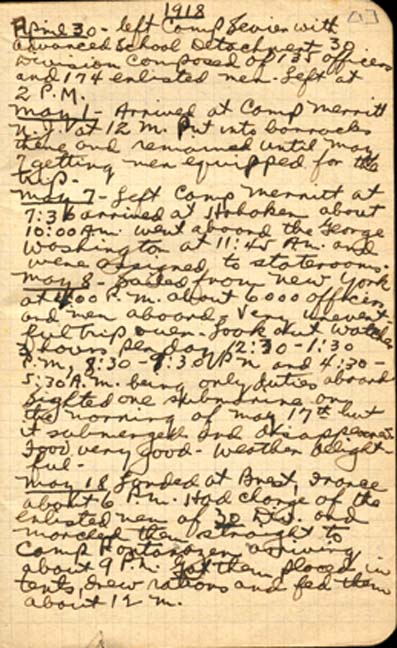 1918
[1]
April 30 - left Camp Sevier with
advanced School Detachment 30
Division composed of 135 officers
and 174 enlisted men. Left at
2 P.M.
May 1 - Arrived at Camp Merritt
N.J. at 12 M. Put into barracks
there and remained until May
7 getting men equipped for the
trip -
May 7 - Left Camp Merritt at
7:36 arrived at Hoboken about
10:00 Am. went aboard the George
Washington at 11:45 Am. and
were assigned to staterooms.
May 8 - Sailed from New York
at 4:00 P.M. about 6000 officers
and men aboard - Very unevent
ful trip over. Look out watches
3 hours per day 12:30 - 1:30
P.M, 8:30 - 9:30 PM and 4:30 -
5:30 A.M. being only duties aboard
Sighted one submarine on
the morning of May 17th but
it submerged and disappeared
Food very good - Weather delight
ful -
May 18 Landed at Brest, France
about 6 P.M. Had charge of the
enlisted men of 30 Div. and
marched them straight to
Camp Pontanazen arriving
about 9 P.M. Got them placed in
tents, drew rations and fed them
about 12 M.